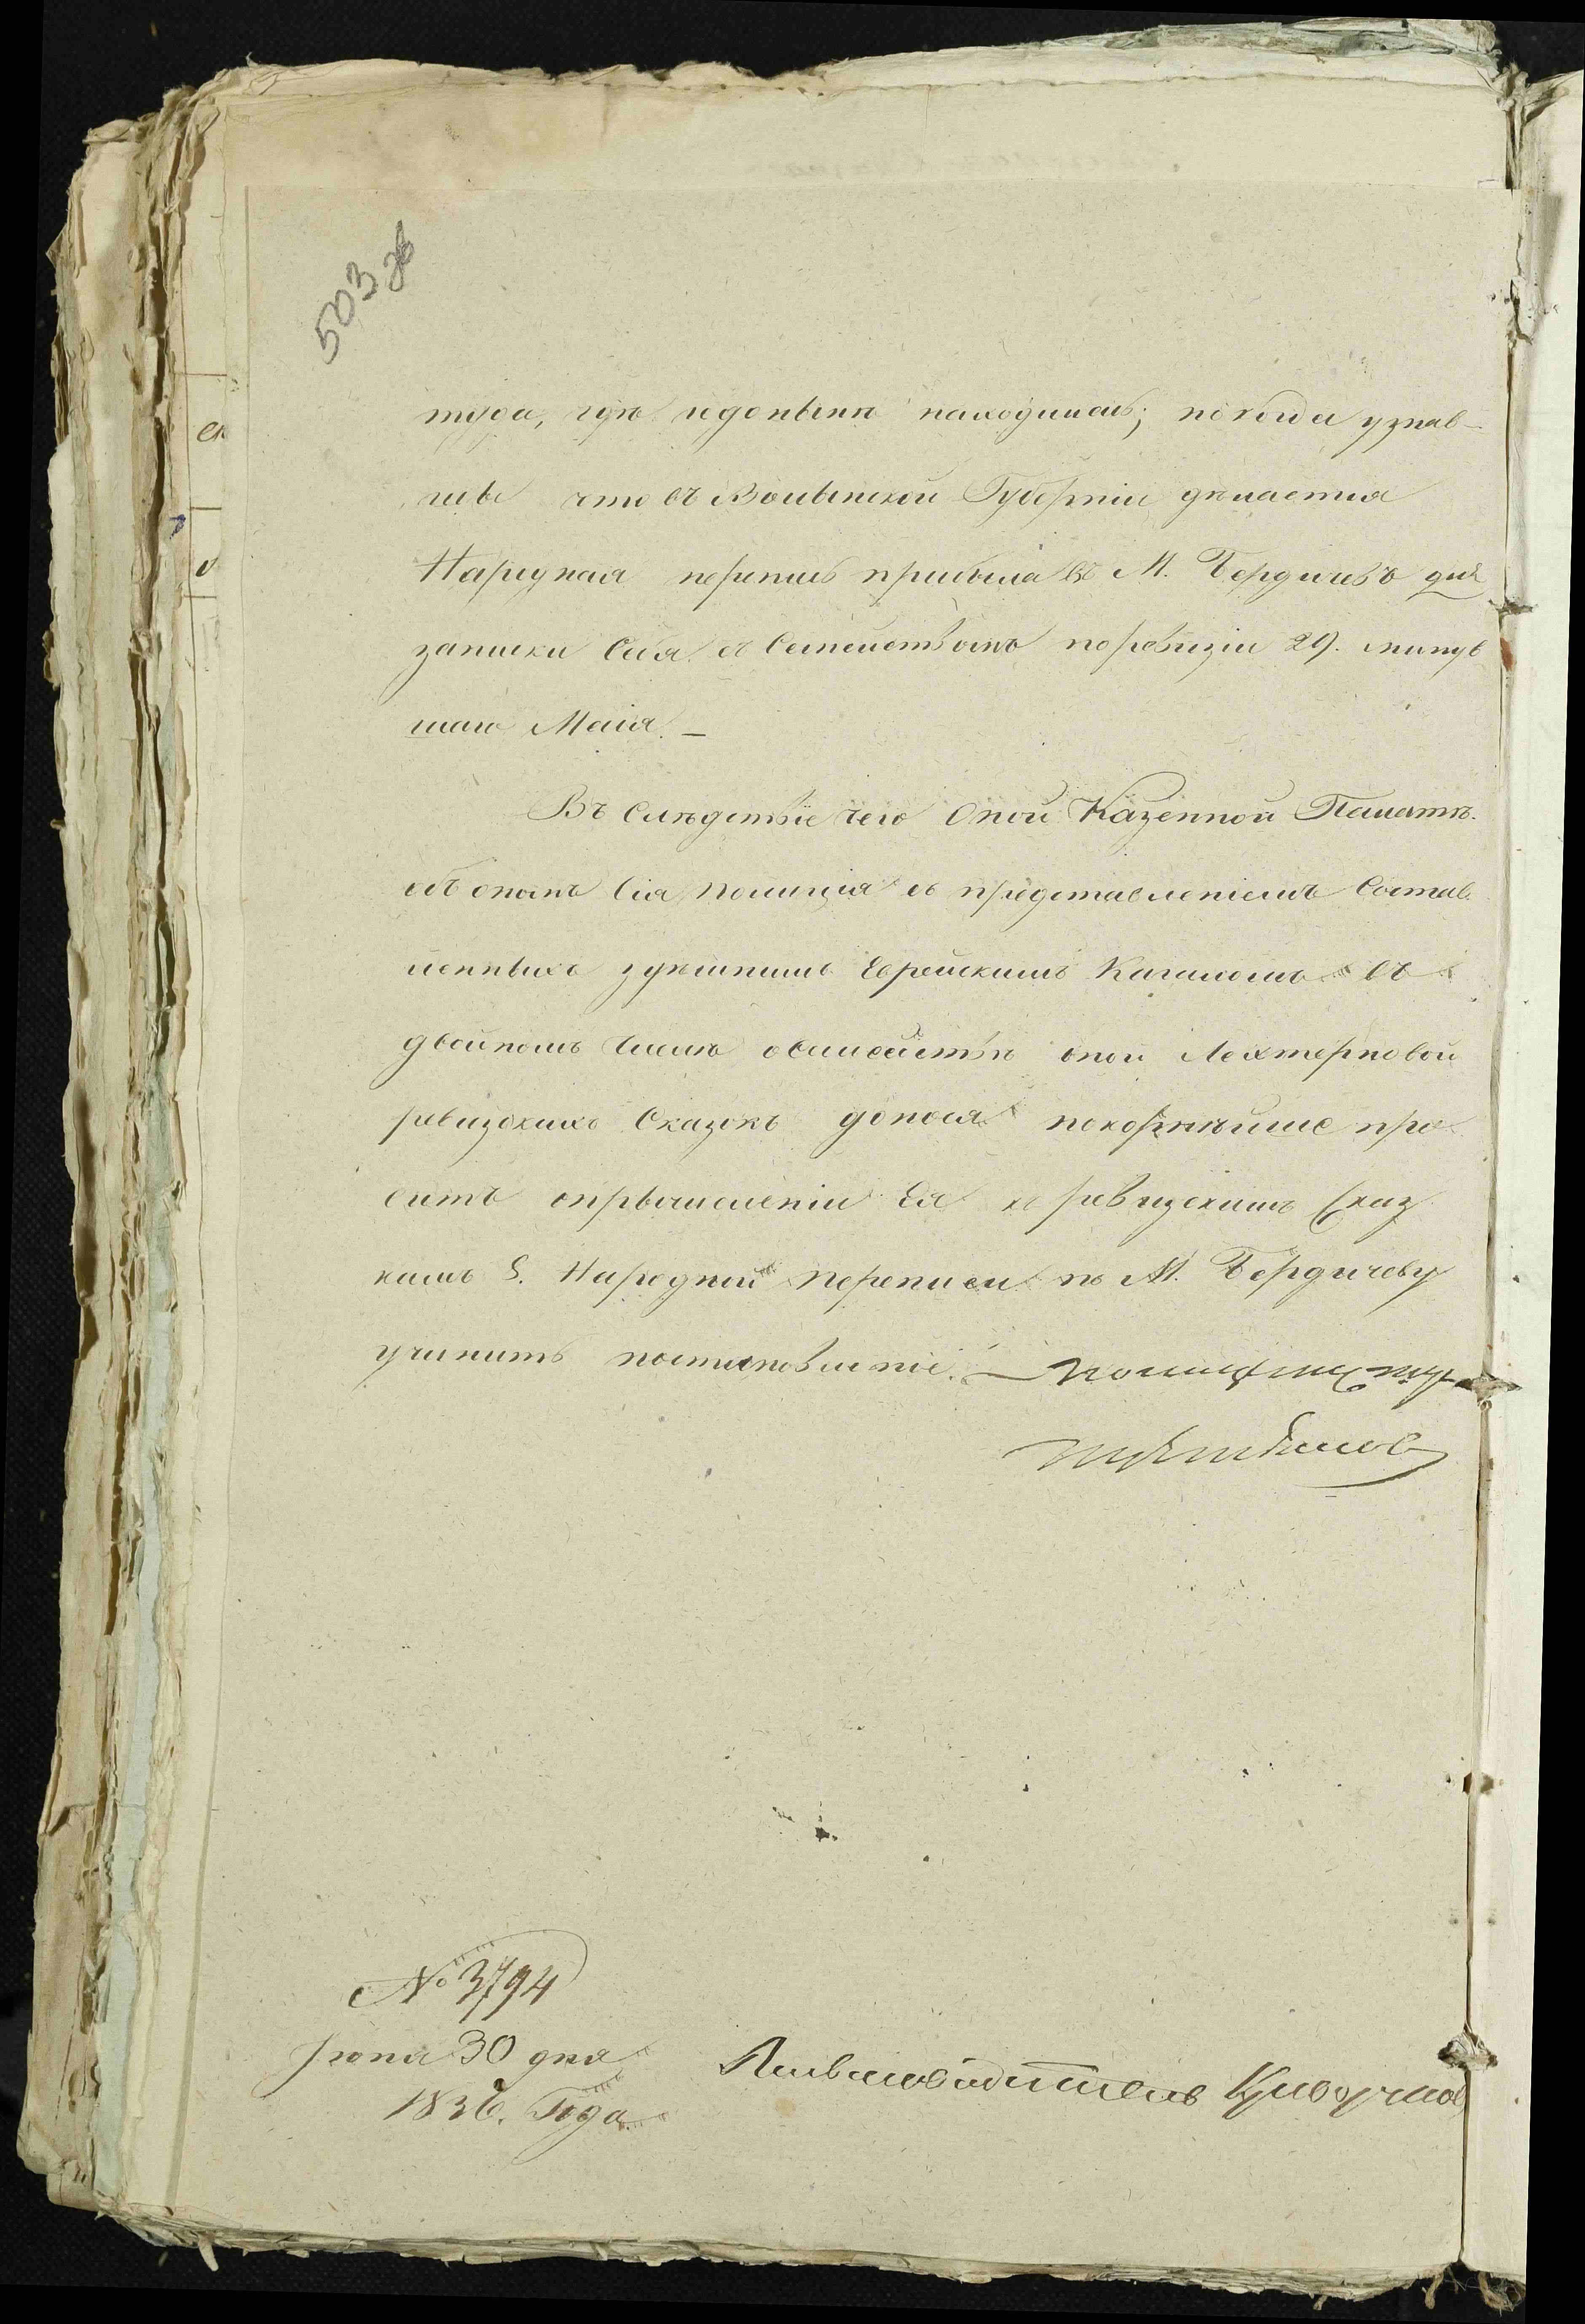 503 об
туда, где и доныне находилась; но когда узнав-
шы что въ Волынской Губерніи делается
Народная перепись прибыла въ М. Бердичевъ для
записки Себя съ Семействомъ по ревизіи 29. минув
шаго Маія. —
Въ Следствіе чего Оной Казенной Палатѣ.
объ ономъ Сія полиція съ представленіемъ Состав
ленныхъ здѣшнимъ Еврейскимъ Кагаломъ въ
двойномъ Числѣ о Семействѣ оной Лехтерповой
ревизскихъ Сказокъ донося покорнѣйше про
ситъ о причисленіи Ея къ ревизскимъ Сказ
камъ 8. Народной переписи по М. Бердичеву
учинить постановленіе. — Полицмейстеръ
№ 3794
Іюня 30 дня
1836. Года
Письмоводитель